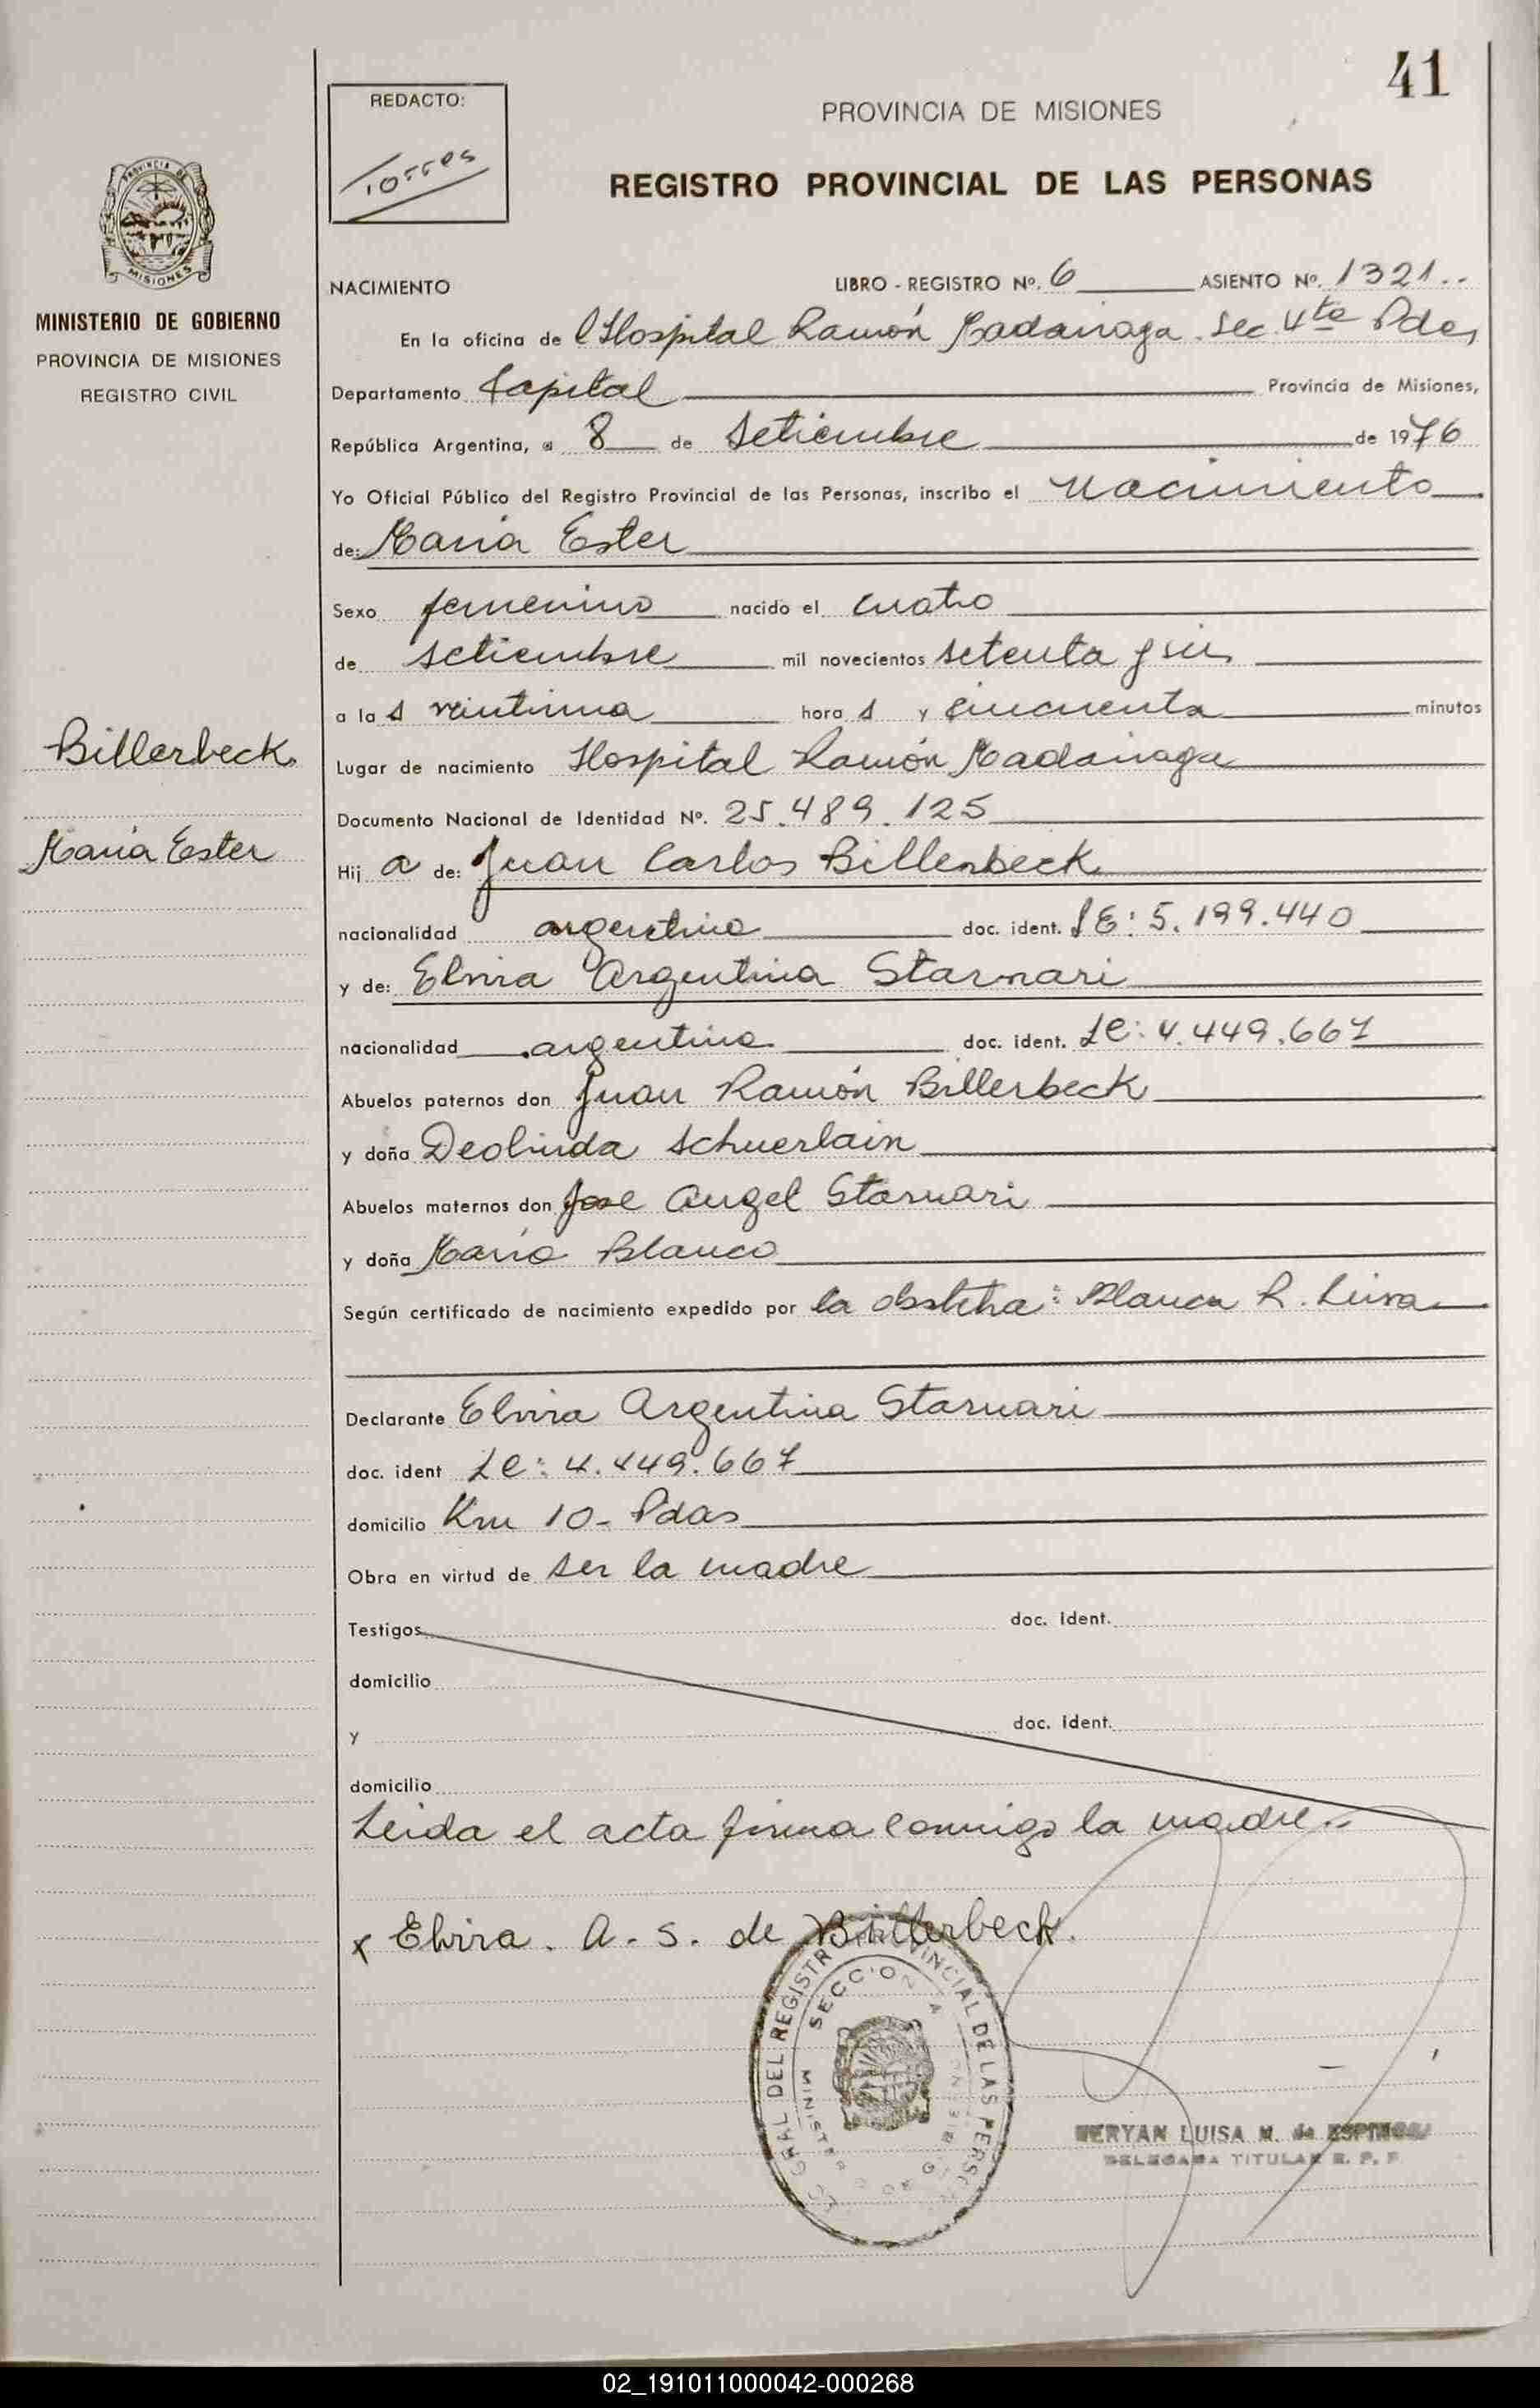 41
REDACTO:
Torres
PROVINCIA DE MISIONES
REGISTRO PROVINCIAL DE LAS PERSONAS
PROVINCIA DE
MISIONES
MINISTERIO DE GOBIERNO
PROVINCIA DE MISIONES
REGISTRO CIVIL
Billerbeck
María Ester
NACIMIENTO LIBRO - REGISTRO Nº. 6 ASIENTO Nº. 1321..
En la oficina de l Hospital Ramón Madariaga. Sec. 4ta Pdas,
Departamento Capital Provincia de Misiones,
República Argentina, a 8 de Setiembre de 1976
Yo Oficial Público del Registro Provincial de las Personas, inscribo el Nacimiento
de: María Ester
Sexo femenino nacido el cuatro
de setiembre mil novecientos setenta y seis
a la s veintiuna hora s y cincuenta minutos
Lugar de nacimiento Hospital Ramón Madariaga
Documento Nacional de Identidad Nº. 25.489.125
Hij a de: Juan Carlos Billerbeck
nacionalidad argentina doc. ident. LE: 5.199.440
y de: Elvira Argentina Starnari
nacionalidad argentina doc. ident. LC: 4.449.667
Abuelos paternos don Juan Ramón Billerbeck
y doña Deolinda Schuerlain
Abuelos maternos don Jose Angel Starnari
y doña María Blanco
Según certificado de nacimiento expedido por la obstetra: Blanca R. Leiva
Declarante Elvira Argentina Starnari
doc. ident LC: 4.449.667
domicilio Km 10- Pdas
Obra en virtud de ser la madre
Testigos doc. ident.
domicilio
y doc. ident.
domicilio
Leida el acta firma conmigo la madre..
x Elvira. A. S. de Billerbeck.
GRAL DEL REGISTRO PROVINCIAL DE LAS PERSO
SECCION
MINISTE
MERYAN LUISA M. de ESPINOSA
DELEGADA TITULAR R. P. P
02_191011000042-000268